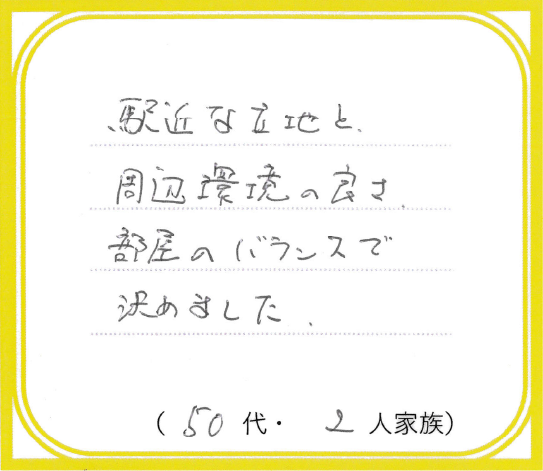 駅近な立地と、
周辺環境の良さ、
部屋のバランスで
決めました。
(50代・2人家族)